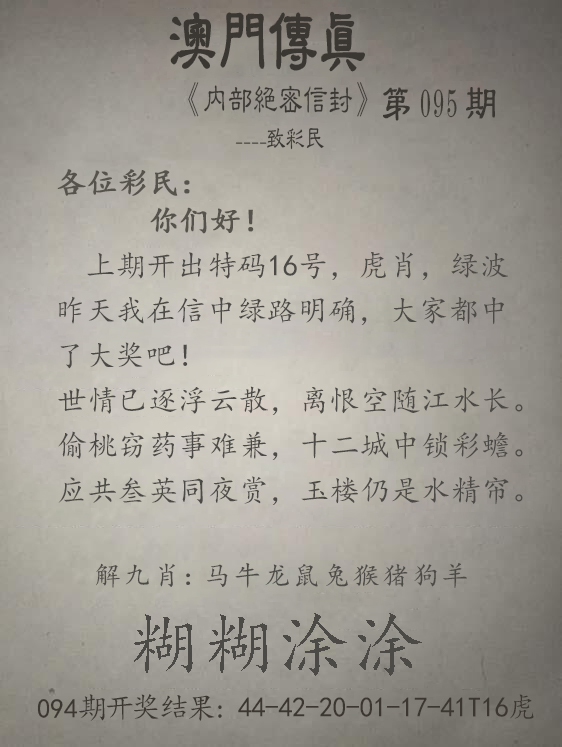 澳門傳眞
《内部絕密信封》第095期
----致彩民
各位彩民：
你们好！
上期开出特码16号，虎肖，绿波
昨天我在信中绿路明确，大家都中
了大奖吧！
世情已逐浮云散，离恨空随江水长。
偷桃窃药事难兼，十二城中锁彩蟾。
应共叁英同夜赏，玉楼仍是水精帘。
解九肖：马牛龙鼠兔猴猪狗羊
糊糊涂涂
094期开奖结果：44-42-20-01-17-41T16虎